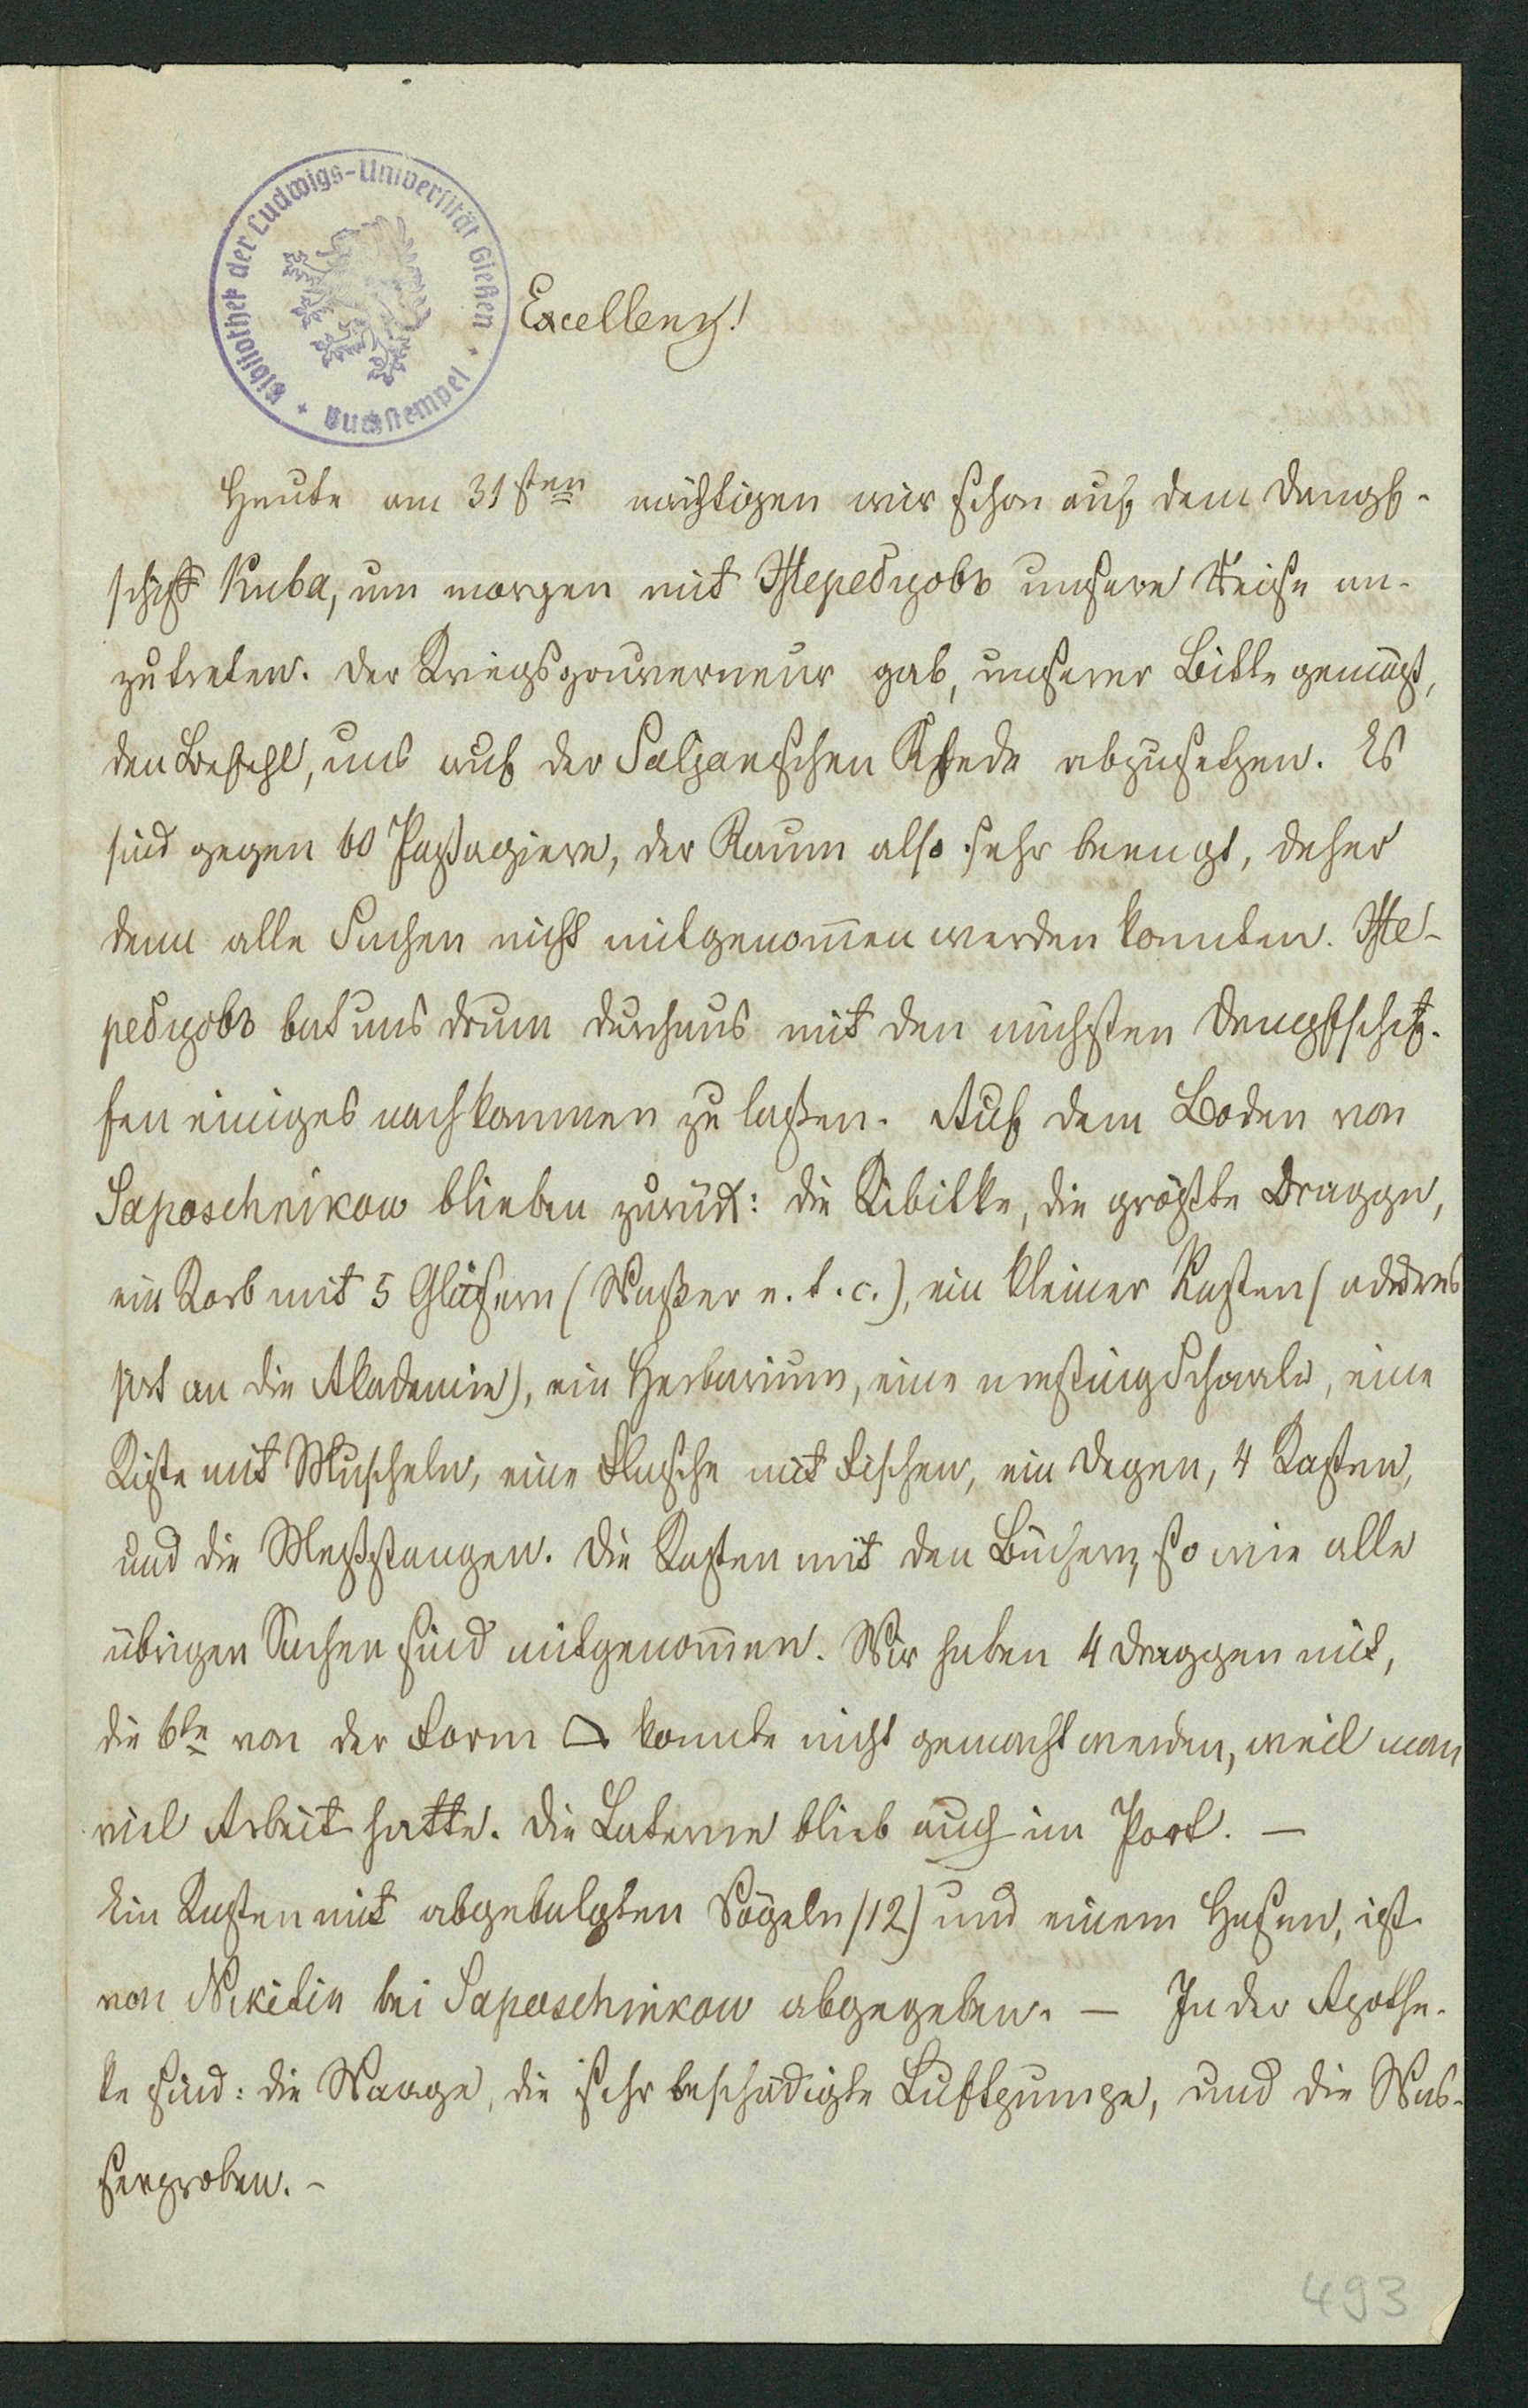 Bibliothek der Ludwigs-Universität Gießen
+ Buchstempel +
Excellenz!
Heute am 31sten nächtigen wir schon auf dem Dampf-
schiff Kuba, um morgen mit Жеребцовъ unsere Reise an-
zutreten. Der Kriegsgouverneur gab, unserer Bitte gemäß,
den Befehl, uns auf der Saljanschen Rhede abzusetzen. Es
sind gegen 60 Passagiere, der Raum also sehr beengt, daher
denn alle Sachen nicht mitgenom̅en werden konnten. Же-
ребцовъ bat uns drum durchaus mit den nächsten Dampfschif-
fen einiges nachkommen zu lassen. Auf dem Boden von
Saposchnikow blieben zurück: die Kibitke, die größte Dragge,
ein Korb mit 5 Gläsern (Wasser e. t. c.), ein kleiner Kasten (addres-
sirt an die Akademie), ein Herbarium, eine messing Schaale, eine
Kiste mit Muscheln, eine Flasche mit Fischen, ein Degen, 4 Kasten,
und die Meßstangen. Die Kasten mit den Büchern, so wie alle
übrigen Sachen sind mitgenom̅en. Wir haben 4 Draggen mit,
die 6te von der Form konnte nicht gemacht werden, weil man
viel Arbeit hatte. Die Laterne blieb auch im Port. —
Ein Kasten mit abgebalgten Vögeln (12) und einem Hasen, ist
von Nikitin bei Saposchnikow abgegeben. — In der Apothe-
ke sind: die Waage, die sehr beschädigte Luftpumpe, und die Was-
serproben. —
493